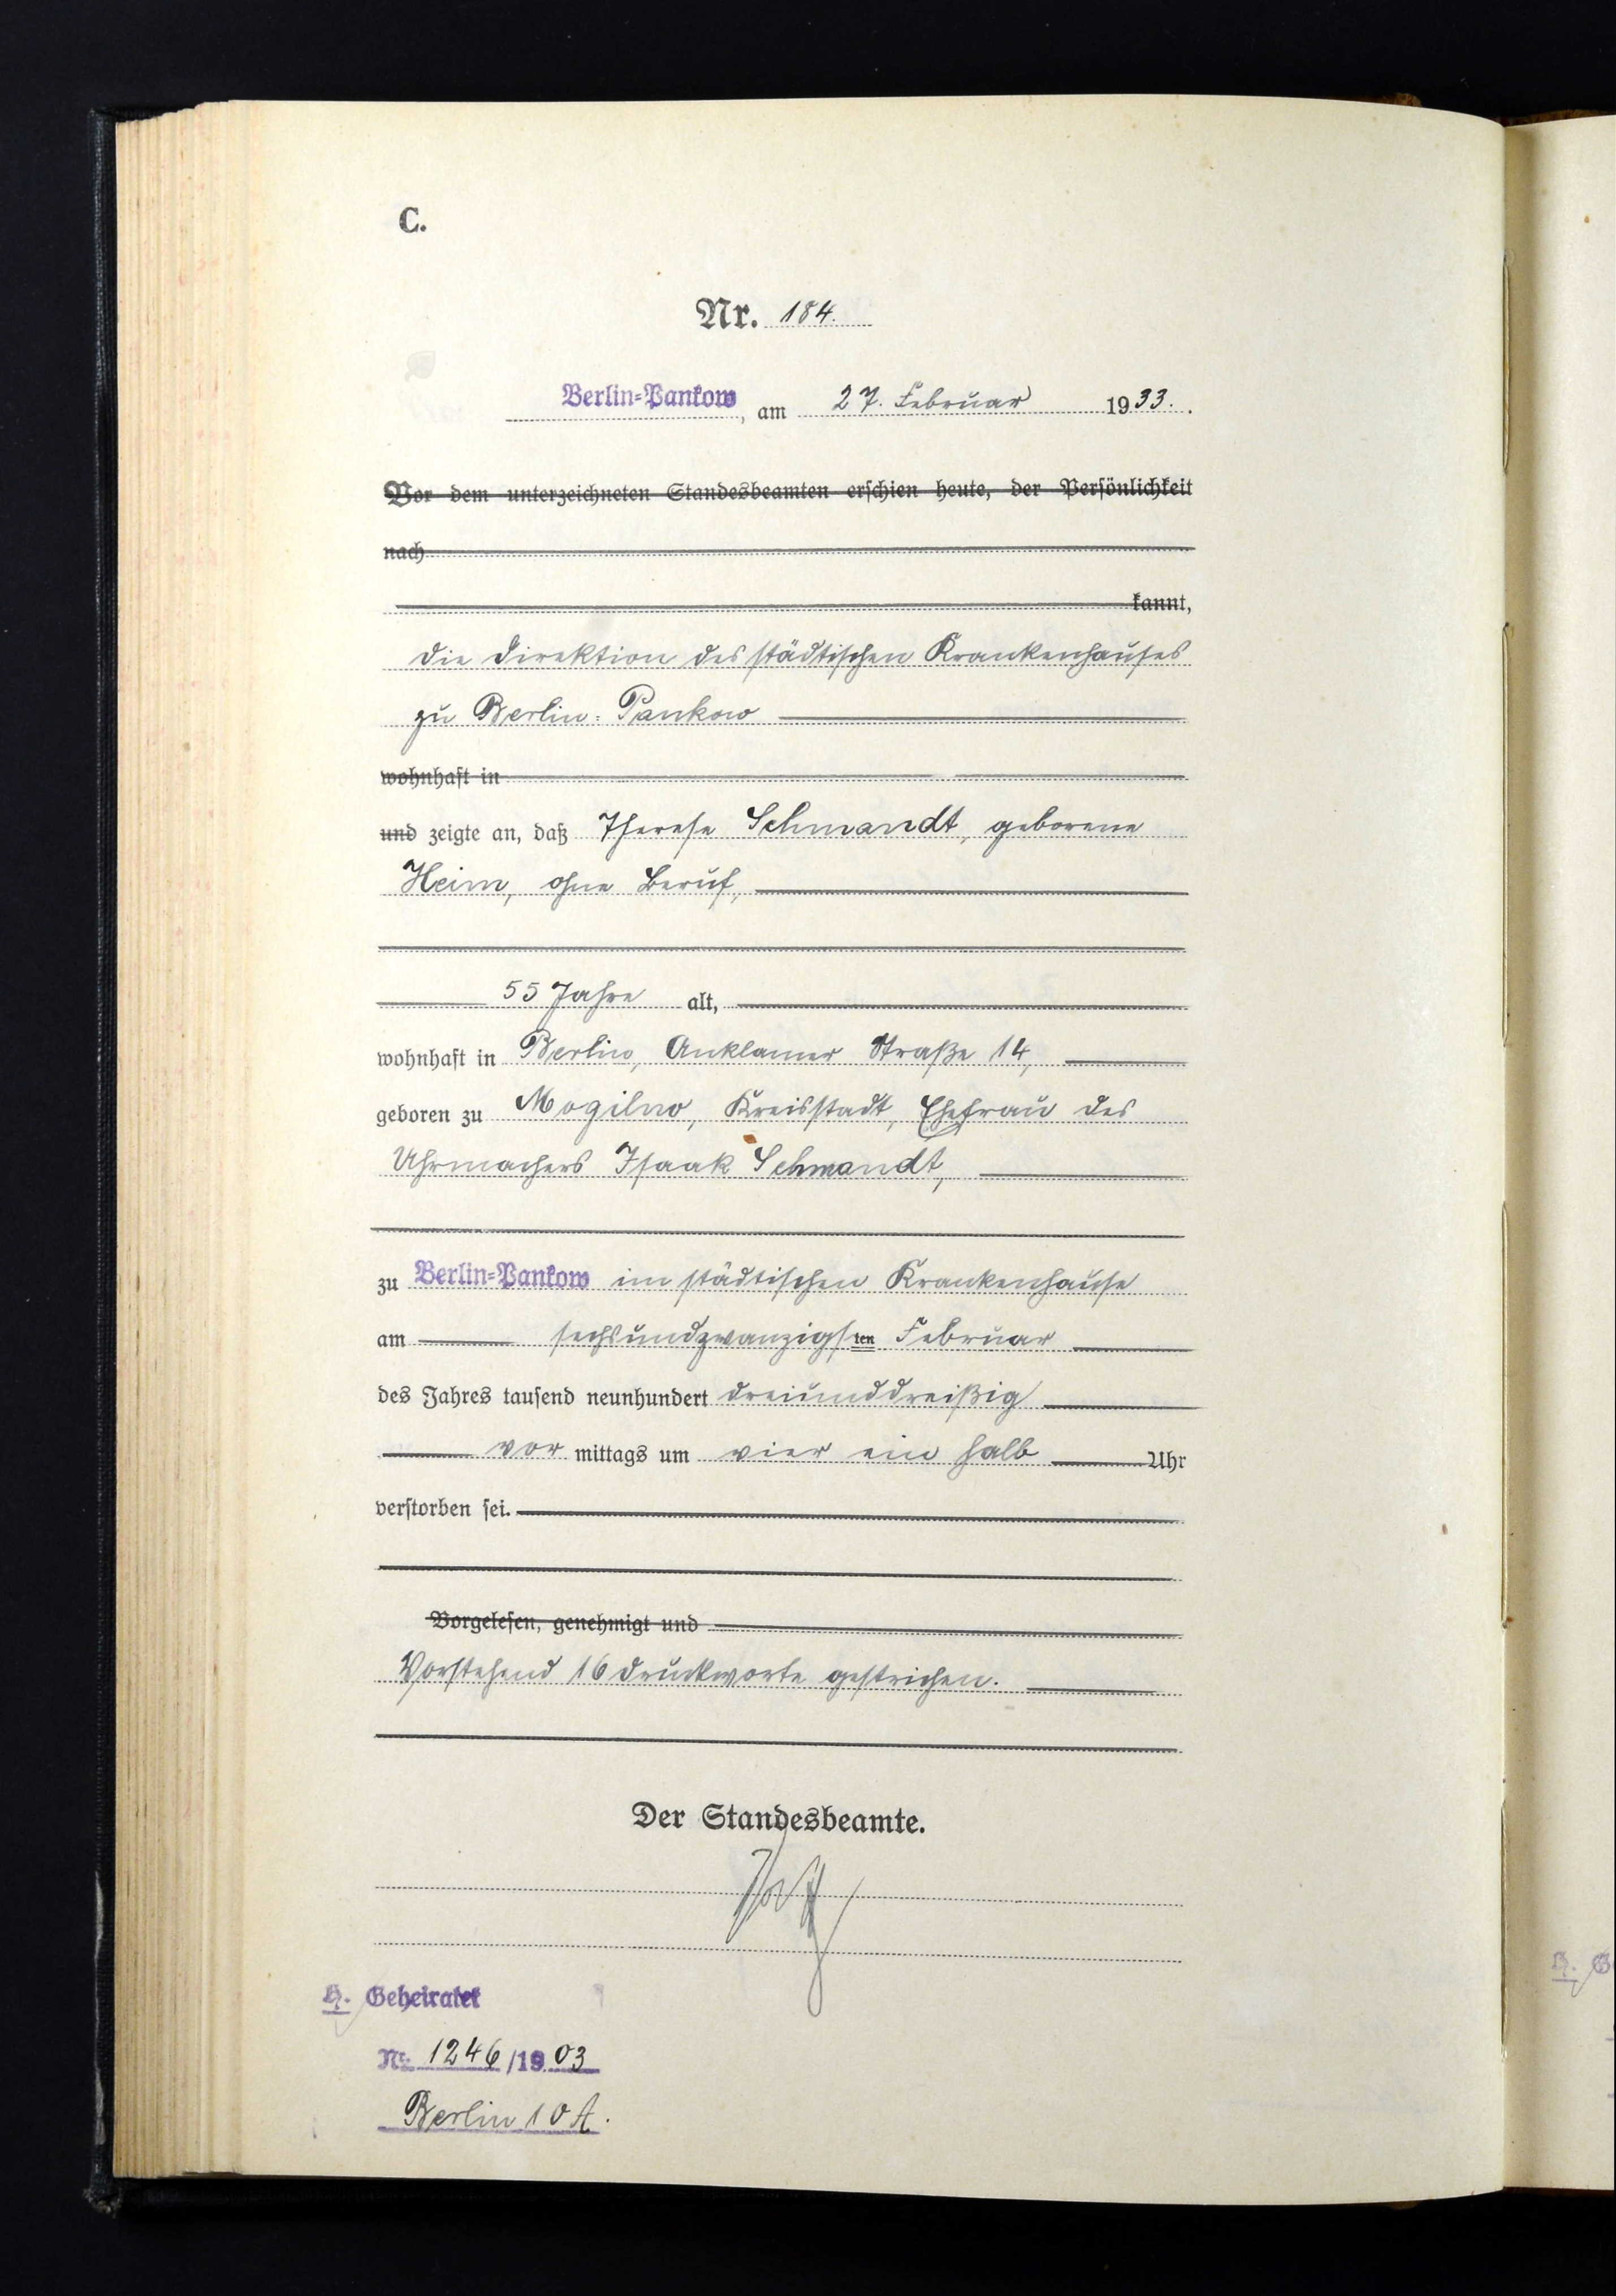 C.
Nr. 184.
Berlin-Pankow, am 27. Februar 1933.
Vor dem unterzeichneten Standesbeamten erschien heute, der Persönlichkeit
nach
kannt,
die Direktion des städtischen Krankenhauses
zu Berlin-Pankow
wohnhaft in
und zeigte an, daß Therese Schmandt, geborene
Heim, ohne Beruf,
55 Jahre alt,
wohnhaft in Berlin, Anklamer Straße 14,
geboren zu Mogilno, Kreisstadt, Ehefrau des
Uhrmachers Isaak Schmandt,
zu Berlin-Pankow im städtischen Krankenhause
am sechsundzwanzigsten Februar
des Jahres tausend neunhundert dreiunddreißig
vor mittags um vier ein halb Uhr
verstorben sei.
Vorgelesen, genehmigt und
Vorstehend 16 Druckworte gestrichen.
Der Standesbeamte.
H. Geheiratet
Nr. 1246/1903
Berlin 10A.